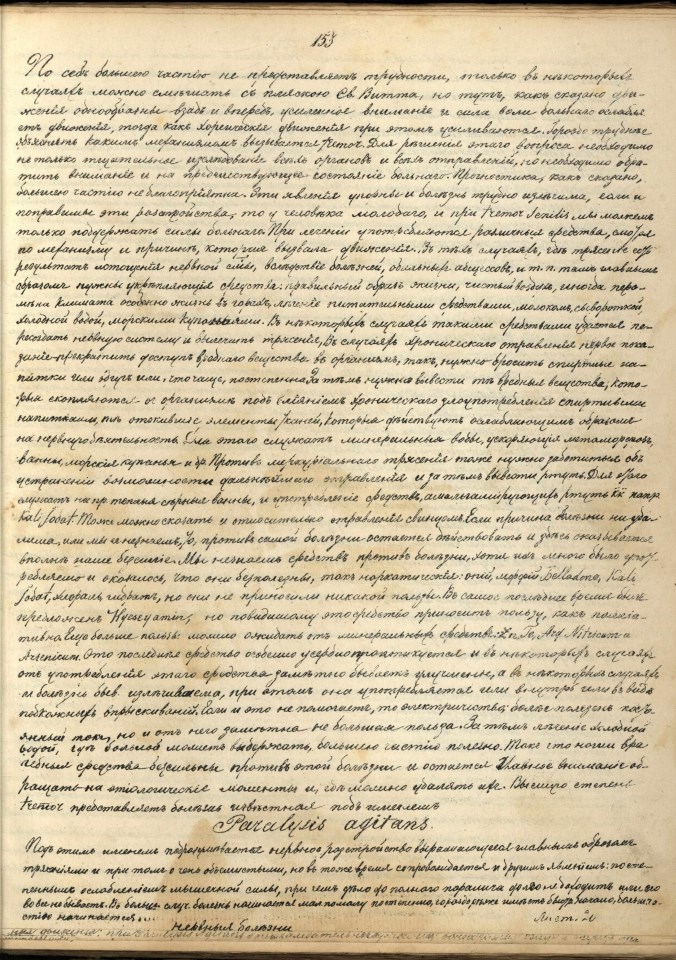 153
По себѣ большею частію не представляетъ трудности, только въ нѣкоторыхъ
случаяхъ можно смѣшать съ пляскою Св. Витта, но тутъ, какъ сказано дви-
женія однообразны взадъ и впередъ, усиленное вниманіе и сила воли больнаго ослабля-
етъ движенія, тогда какъ хореическія движенія при этомъ усиливаются. Гораздо труднѣе
объяснить какимъ механизмомъ вызывается tremor. Для рѣшенія этаго вопроса необходимо
не только тщательное изслѣдованіе всѣхъ органовъ и всѣхъ отправленій, но необходимо обра-
тить вниманіе и на предшествующее состояніе больнаго. Прогностика, какъ сказано,
большею частію не благопріятна. Эти явленія упорны и болѣзнь трудно излѣчима, если и
поправимы эти разстройства, то у человѣка молодаго, и при tremor senilis мы можемъ
только поддержать силы больнаго. При леченіи употребляются различныя средства, смотря
по механизму и причинѣ, которая вызвала движенія. Въ тѣхъ случаяхъ, гдѣ трясеніе есть
результатъ истощенія нервной силы, вслѣдствіе болѣзней, обильныхъ абцессовъ, и т. п. тамъ главнымъ
образомъ нужны укрѣпляющія средства: правильный образъ жизни, чистый воздухъ, иногда пере-
мѣна климата особенно жизнь въ горахъ, лѣченіе питательными средствами, молокомъ, сывороткой,
холодной водой, морскими купаньями. Въ нѣкоторыхъ случаяхъ такими средствами удается
нервную систему и облегчить трясенія. Въ случаяхъ хроническаго отравленія первое пока-
заніе прекратить доступъ вреднаго вещества въ организмъ, такъ, нужно бросить спиртные на-
питки или вдругъ или, что чаще, постепенно. За тѣмъ нужно вывести тѣ вредныя вещества, кото-
рыя скопляются въ организмѣ подъ вліяніемъ хроническаго злоупотребленія спиртными
напитками, тѣ отжившіе элементы тканей, которыя дѣйствуютъ ослабляющимъ образомъ
на нервную дѣятельность. Для этого служатъ минеральныя воды, ускоряющія метаморфозъ,
ванны, морскія купанья и др. Противъ меркуріальнаго трясенія тоже нужно заботиться объ
устраненіи возможности дальнѣйшаго отравленія и за тѣмъ вывести ртуть. Для этого
служатъ напр теплыя сѣрныя ванны, и употребленіе средствъ, амальгамирующихъ ртуть
Kali Jodat. Тоже можно сказать и относительно отравленія свинцомъ. Если причина болѣзни не уда-
лима, или мы не знаемъ, то, противъ самой болѣзни остается дѣйствовать и здѣсь сказывается
вполнѣ наше безсиліе. Мы не знаемъ средствъ противъ болѣзни, хотя ихъ много было упот-
реблено и оказалось, что они безполезны, такъ наркотическія: опій, морфій, Belladona, Kali
Jodat, хлоралъ гидратъ, но они не приносили никакой пользы. Въ самое послѣднее время былъ
предложенъ Hyoscyamin, но повидимому это средство приноситъ пользу, какъ палліа-
тивно. Еще больше пользы можно ожидать отъ минеральныхъ средствъ: Arg. Nitricum и
Arsenicum. Это послѣднее средство особенно усердно практикуется и въ нѣкоторыхъ случаяхъ
отъ употребленія этаго средства замѣтно бываетъ улучшеніе, а въ нѣкоторыхъ случаяхъ
и болѣзнь была излѣчиваема, при этомъ она употребляется или внутрь или въ видѣ
подкожныхъ впрыскиваній. Если и это не помогаетъ, то электричество, болѣе полезенъ посто-
янный токъ, но и отъ него замѣтна не большая польза. За тѣмъ лѣченіе холодной
водой, гдѣ больной можетъ выдержать, большею частію полезно. Такъ что ночти вра-
чебныя средства безсильны противъ этой болѣзни и остается главное вниманіе об-
ращать на этіологическіе моменты и, гдѣ можно удалять ихъ. Высшую степень
tremor представляетъ болѣзнь извѣстная подъ именемъ
Paralysis agitans.
Подъ этимъ именемъ подразумѣвается нервное разстройство выражающееся главнымъ образомъ
трясеніями и при томъ очень объемистыми, но въ тоже время сопровождается и другимъ явленіемъ: посте-
пеннымъ ослабленіемъ мышечной силы, при чемъ дѣло до полнаго паралича долго не доходитъ или его
вовсе не бываетъ. Въ больш. случ. болѣзнь начинается мало помалу постепенно, гораздо рѣже имѣетъ быстр. начало, большею ча-
стью начинается
Нервныя болѣзни
Лист. 20